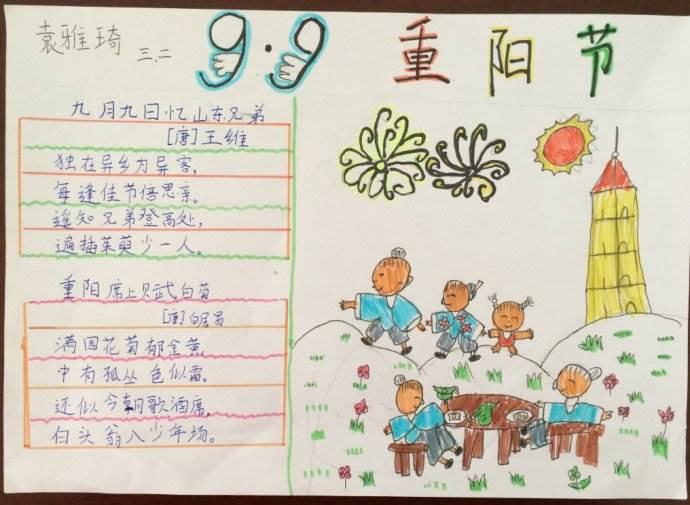 袁雅琦 三.二
9.9 重阳节
九月九日忆山东兄弟
[唐]王维
独在异乡为异客,
每逢佳节倍思亲。
遥知兄弟登高处,
遍插茱萸少一人。
重阳席上赋白菊
[唐]白居易
满园花菊郁金黄,
中有孤丛色似霜。
还似今朝歌酒席,
白头翁入少年场。